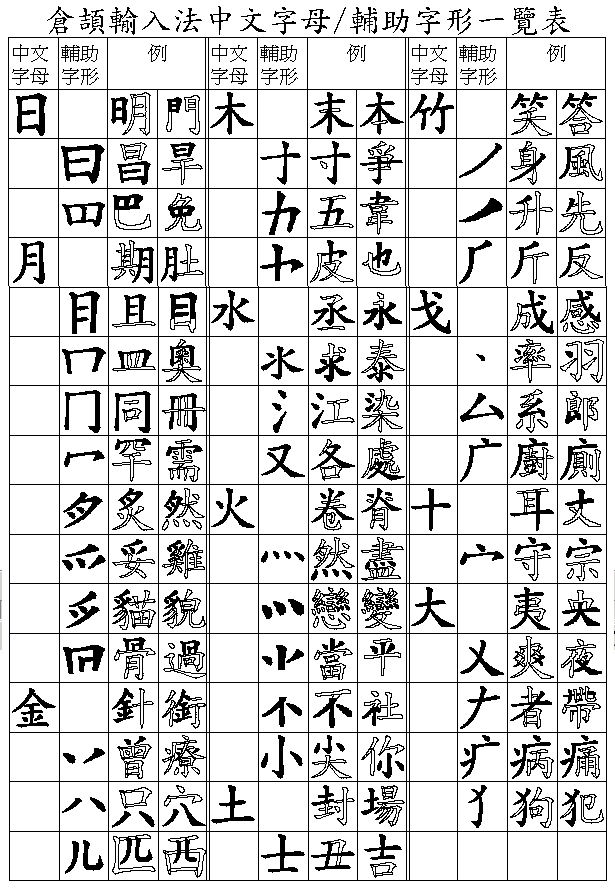 倉頡輸入法中文字母/輔助字形一覽表
中文字母 輔助字形 例 中文字母 輔助字形 例 中文字母 輔助字形 例
日 明 門 木 末 本 竹 笑 答
曰 昌 旱 十 寸 爭 丿 身 風
巴 免 五 韋 升 先
月 期 肚 皮 也 厂 斤 反
目 且 目 水 丞 永 戈 成 感
冂 皿 奧 氺 求 泰 丶 率 羽
冂 同 冊 氵 江 染 厶 系 郎
冖 罕 需 又 各 處 广 廚 廁
炙 然 火 卷 脊 十 耳 丈
爫 妥 雞 灬 然 盡 宀 守 宗
貓 貌 戀 變 大 夷 央
骨 過 當 平 乂 爽 夜
金 針 銜 不 社 𠂇 者 帶
丷 曾 療 小 尖 你 疒 病 痛
八 只 穴 土 封 場 犭 狗 犯
儿 匹 西 士 丑 吉